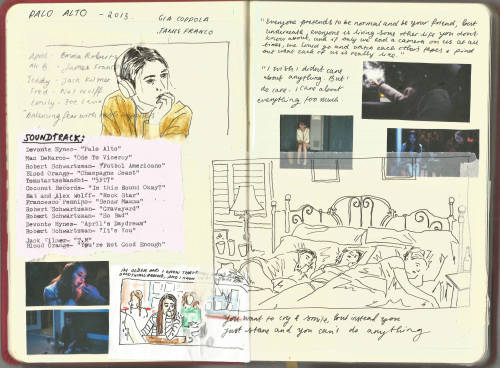 PALO ALTO - 2013
GIA COPPOLA
JAMES FRANCO
April - Emma Roberts
Mr. B. - James Franco
Teddy - Jack Kilmer
Fred - Nat Wolff
Emily - Zoe Levin
SOUNDTRACK:
Devonte Hynes- "Palo Alto"
Mac DeMarco- "Ode To Viceroy"
Robert Schwartzman- "Futbol Americano"
Blood Orange- "Champagne Coast"
Tonstartssbandht- "5FT7"
Coconut Records- "Is This Sound Okay?"
Nat and Alex Wolff- "Rock Star"
Francesco Pennino- "Senza Mamma"
Robert Schwartzman- "Graveyard"
Robert Schwartzman- "So Bad"
Devonte Hynes- "April's Daydream"
Robert Schwartzman- "It's You"
Jack Kilmer- "T.M"
Blood Orange- "You're Not Good Enough"
"Everyone pretends to be normal and be your friend, but
underneath, everyone is living some other life you don't
know about, and if only we had a camera on us at all
times, we could go and watch each other's tapes & find
out what each of us is really like."
"I wish I didn't care
about anything. But I
do care. I care about
everything too much
You want to cry & smile, but instead you
just stare and you can't do anything